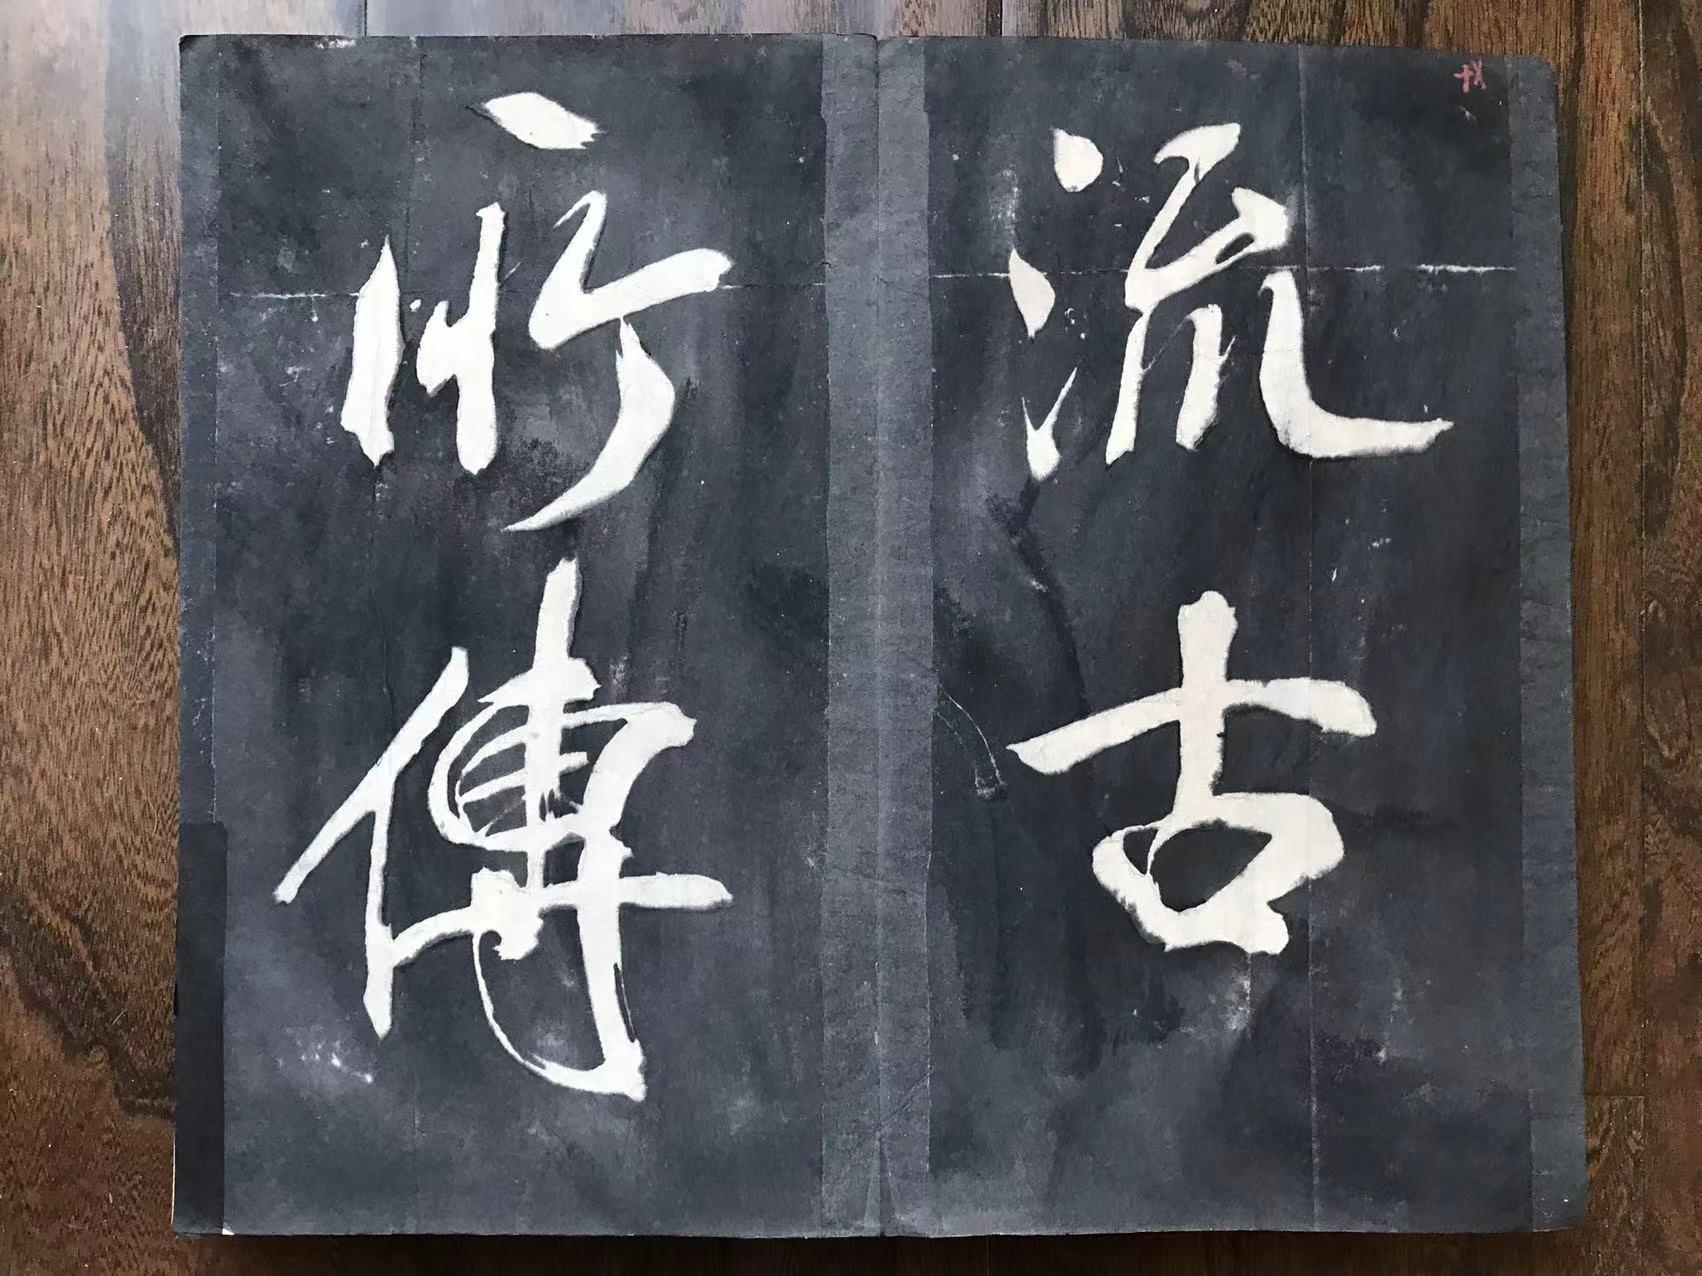 流古
所傳